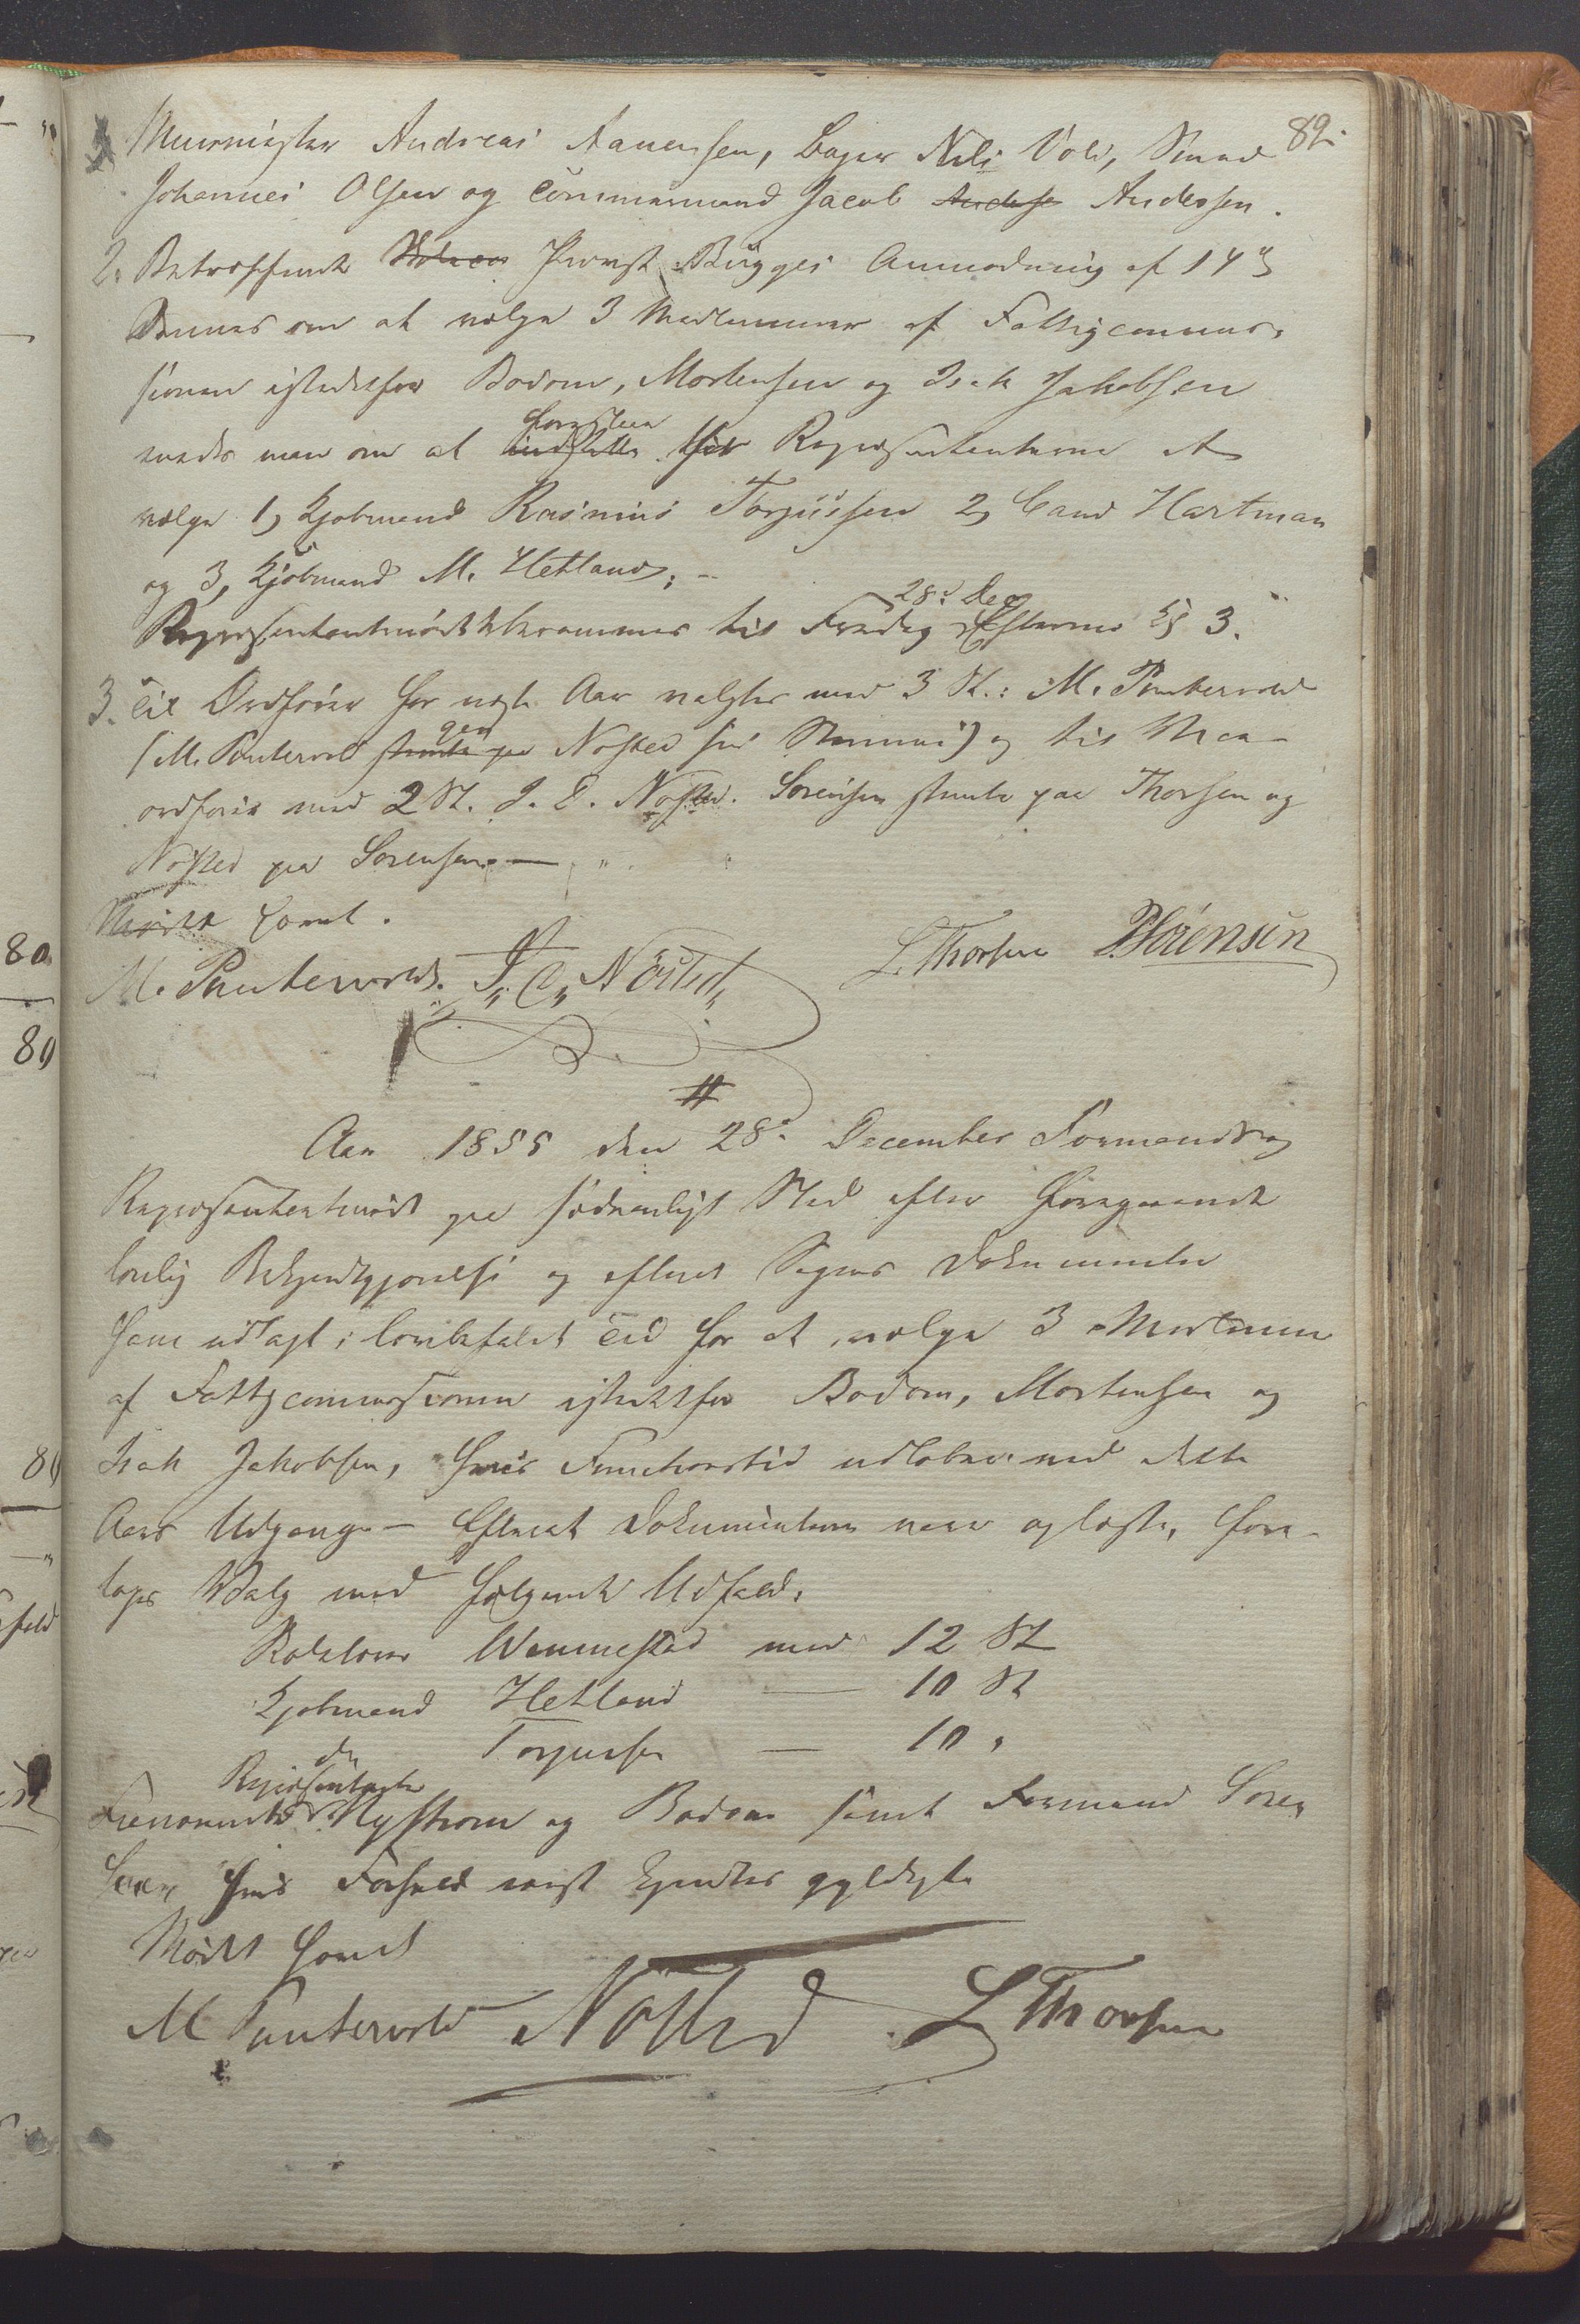 82.
Muurmester Andreas Aanensen, Bager Nils Vold, Smed
Johannes Olsen og Tømmermand Jacob Andersen.
2. Betræffende Provst Bugges Anmodning af 14de
Dennes om at vælge 3 Medlemmer af Fattigcommis-
sionen istedetfor Bodom, Mortensen og Isak Jakobsen
enedes man om at foreslaa Repræsentanterne at
vælge 1, Kjøbmand Rasmus Torjussen 2, Cand Hartman
og 3, Kjøbmand M. Hetland; -
28de Dec
Repræsentantmøde berammes til Fredag Efterm Kl 3.
3. Til Ordfører for næste Aar valgtes med 3 St.: M. Puntervold
(M. Puntervold gav Nøsted sin Stemme) og til Vice-
ordfører med 2 St. J. C. Nøsted. Sørensen stemte paa Thorsen og
Nøsted paa Sørensen. —
Mødet hævet.
M. Puntervold. J. C. Nøsted L. Thorsen P. Sørensen
Aar 1855 den 28de December Formands og
Repræsentantmøde paa sædvanligt Sted efter foregaaende
lovlig Bekjendtgjørelse og efterat Sagens Dokumenter
have udlagt i lovbefalet Tid for at vælge 3 Medlemmer
af Fattigcommissionen istedetfor Bodom, Mortensen og
Isak Jakobsen, hvis Functionstid udløber med dette
Aars Udgang. — Efterat Dokumenterne vare oplæste, fore-
toges Valg med følgende Udfald:
Rodelover Wennestad med 12 St
Kjøbmand Hetland — 10 St
do Torjussen — 10 "
Repræsentanterne
Fraværende Nystrøm og Bodom samt Formand Søren
sen hvis Forfald ansees gyldigt
Mødet hævet
M Puntervold Nøsted L Thorsen